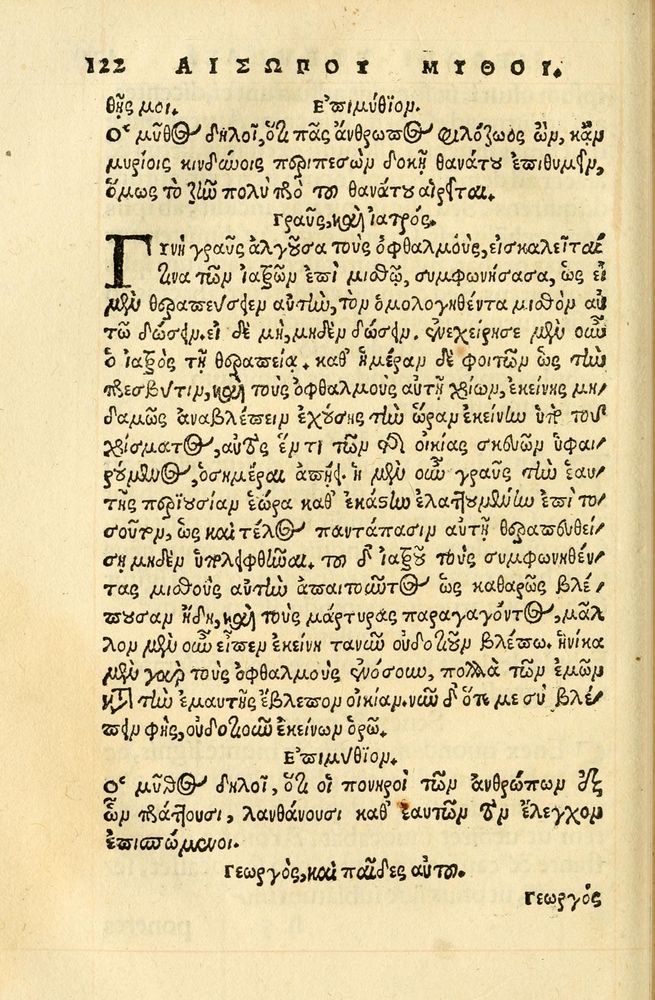 122 ΑΙΣΩΠΟΥ ΜΥΘΟΙ.
θῇς μοι. Ἐπιμύθιον.
Ὁ μῦθος δηλοῖ, ὅτι πᾶς ἄνθρωπος φιλόζωος ὢν, κἂν
μυρίοις κινδύνοις περιπεσὼν δοκῇ θανάτου ἐπιθυμεῖν,
ὅμως τὸ ζῆν πολὺ πρὸ τοῦ θανάτου αἱρεῖται.
Γραῦς, καὶ ἰατρός.
Γυνὴ γραῦς ἀλγοῦσα τοὺς ὀφθαλμοὺς, εἰσκαλεῖταί
τινα τῶν ἰατρῶν ἐπὶ μισθῷ, συμφωνήσασα, ὡς εἰ
μὲν θεραπεύσειεν αὐτὴν, τὸν ὁμολογηθέντα μισθὸν αὐ
τῷ δώσειν. εἰ δὲ μὴ, μηδὲν δώσειν. ἐνεχείρησε μὲν οὖν
ὁ ἰατρὸς τῇ θεραπείᾳ. καθ' ἡμέραν δὲ φοιτῶν ὡς τὴν
πρεσβῦτιν, καὶ τοὺς ὀφθαλμοὺς αὐτῇ χρίων, ἐκείνης μη/
δαμῶς ἀναβλέπειν ἐχούσης τὴν ὥραν ἐκείνην ὑπὸ τοῦ
χρίσματος, αὐτὸς ἕν τι τῶν τῆς οἰκίας σκευῶν ὑφαι/
ρούμενος, ὁσημέραι ἀπῄει. ἡ μὲν οὖν γραῦς τὴν ἑαυ/
τῆς περιουσίαν ἑώρα καθ' ἑκάστην ἐλαττουμένην ἐπὶ το/
σοῦτον, ὡς καὶ τέλος παντάπασιν αὐτῇ θεραπευθεί/
σῃ μηδὲν ὑπολειφθῆναι. τοῦ δ' ἰατροῦ τοὺς συμφωνηθέν/
τας μισθοὺς αὐτὴν ἀπαιτοῦντος ὡς καθαρῶς βλέ/
πουσαν ἤδη, καὶ τοὺς μάρτυρας παραγαγόντος, μᾶλ
λον μὲν οὖν εἶπεν ἐκείνη τανῦν οὐδοτιοῦν βλέπω. ἡνίκα
μὲν γὰρ τοὺς ὀφθαλμοὺς ἐνόσουν, πολλὰ τῶν ἐμῶν
κατὰ τὴν ἐμαυτῆς ἔβλεπον οἰκίαν. νῦν δ' ὅτε με σὺ βλέ/
πειν φῂς, οὐδοτιοῦν ἐκείνων ὁρῶ.
Ἐπιμύθιον.
Ὁ μῦθος δηλοῖ, ὅτι οἱ πονηροὶ τῶν ἀνθρώπων ἐξ
ὧν πράττουσι, λανθάνουσι καθ' ἑαυτῶν τὸν ἔλεγχον
ἐπισπώμενοι.
Γεωργὸς, καὶ παῖδες αὐτοῦ.
Γεωργός